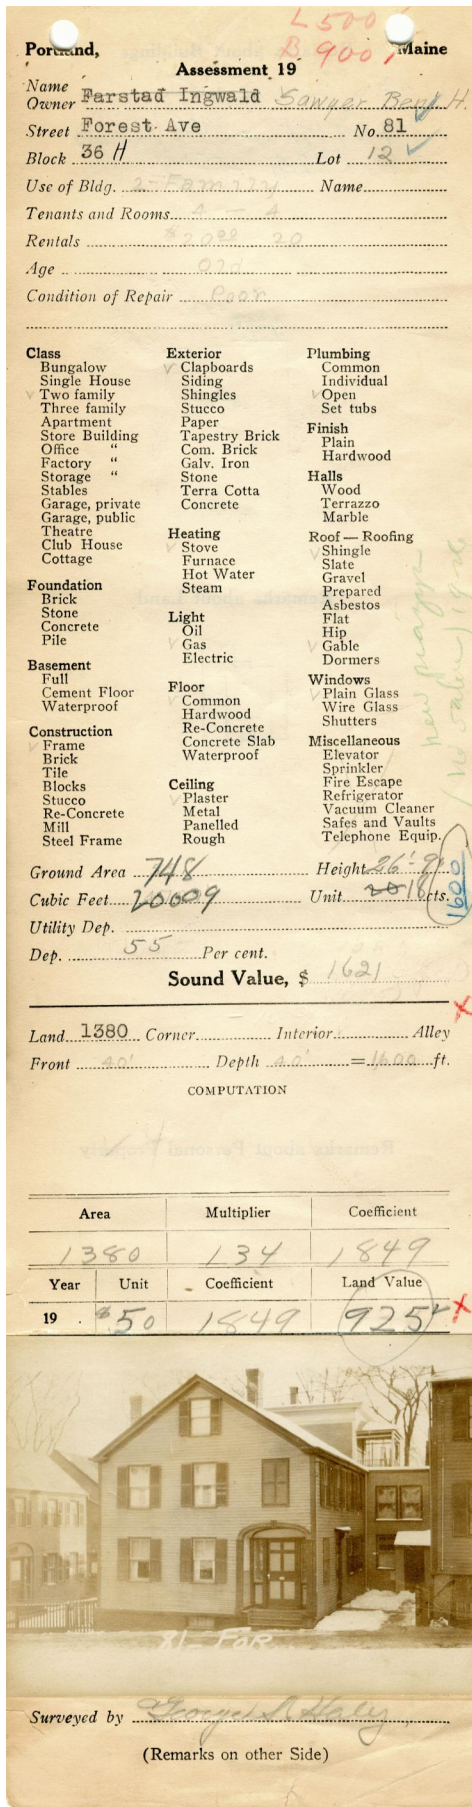 L 500
B 900
Portland, Maine
Assessment 19
Name
Owner Farstad Ingwald Sawyer Benj H.
Street Forest Ave No. 81
Block 36 H Lot 12
Use of Bldg. 2-Family Name
Tenants and Rooms 4 - 4
Rentals $20.00 - 20
Age Old
Condition of Repair Poor
Class
Bungalow
Single House
√ Two family
Three family
Apartment
Store Building
Office "
Factory "
Storage "
Stables
Garage, private
Garage, public
Theatre
Club House
Cottage
Foundation
Brick
Stone
Concrete
Pile
Basement
Full
Cement Floor
Waterproof
Construction
√ Frame
Brick
Tile
Blocks
Stucco
Re-Concrete
Mill
Steel Frame
Exterior
√ Clapboards
Siding
Shingles
Stucco
Paper
Tapestry Brick
Com. Brick
Galv. Iron
Stone
Terra Cotta
Concrete
Heating
√ Stove
Furnace
Hot Water
Steam
Light
Oil
√ Gas
Electric
Floor
√ Common
Hardwood
Re-Concrete
Concrete Slab
Waterproof
Ceiling
√ Plaster
Metal
Panelled
Rough
Plumbing
Common
Individual
√ Open
Set tubs
Finish
Plain
Hardwood
Halls
Wood
Terrazzo
Marble
Roof — Roofing
√ Shingle
Slate
Gravel
Prepared
Asbestos
Flat
Hip
√ Gable
Dormers
Windows
√ Plain Glass
Wire Glass
Shutters
Miscellaneous
Elevator
Sprinkler
Fire Escape
Refrigerator
Vacuum Cleaner
Safes and Vaults
Telephone Equip.
new piazza
1600
Ground Area 748 Height 26'-9"
Cubic Feet 20009 Unit 20 18 cts.
Utility Dep.
Dep. 55 Per cent.
Sound Value, $ 1621
Land 1380 Corner Interior Alley
Front 40' Depth 40' = 1600 ft.
COMPUTATION
Area Multiplier Coefficient
1380 134 1849
Year Unit Coefficient Land Value
19 $50 1849 925
81- FOR
Surveyed by George S. Haley
(Remarks on other Side)